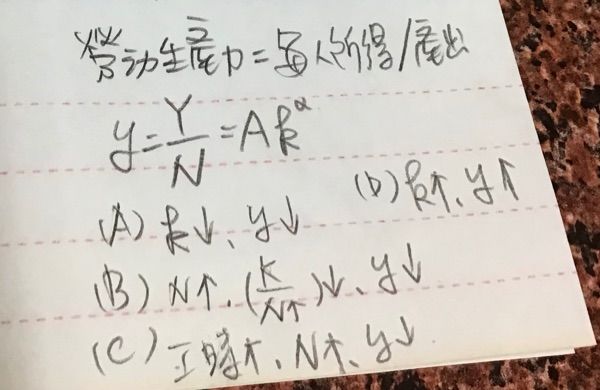 勞动生產力=每人所得/產出
y=Y/N=Ak^α
(A) k↓、y↓
(D) k↑、y↑
(B) N↑、(K/N↑)↓、y↓
(C) 工時↑、N↑、y↓